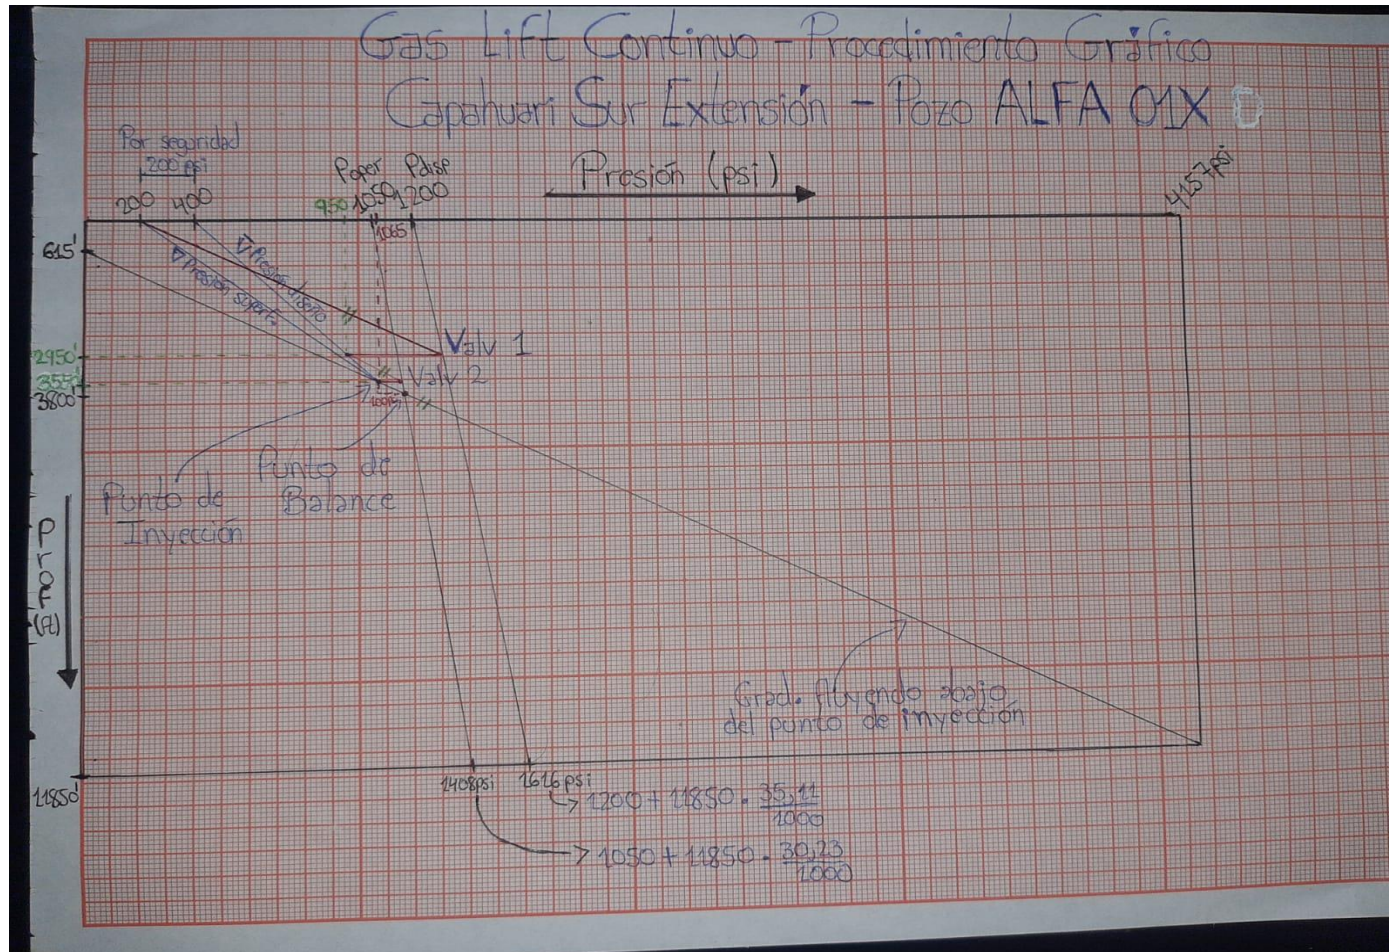 Gas Lift Continuo - Procedimiento Gráfico
Capahuari Sur Extensión - Pozo ALFA 01X D
Por seguridad
200 psi
Poper Pdisp
Presión (psi)
4157psi
200 400 950 1050 1200
1065
615'
∇ Presión diseño
∇ Presión superf.
Valv 1
2950'
Valv 2
3550'
3800'
100psi
Punto de
Balance
Punto de
Inyección
Prof (ft)
Grad. fluyendo abajo
del punto de inyección
11850'
1408psi 1616psi
1200 + 11850 . 35,11
1000
1050 + 11850 . 30,23
1000